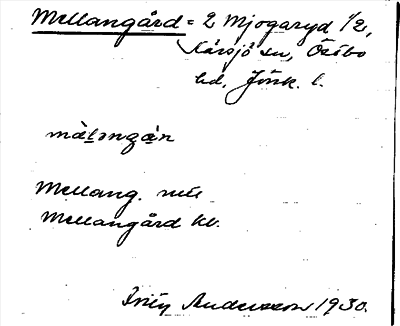 Mellangård = 2 Mjogaryd 1/2,
Kärsjö sn, Östbo
hd, Jönk. l.
mäləngån
Mellang. mtl
Mellangård kv.
Andersson 1930.